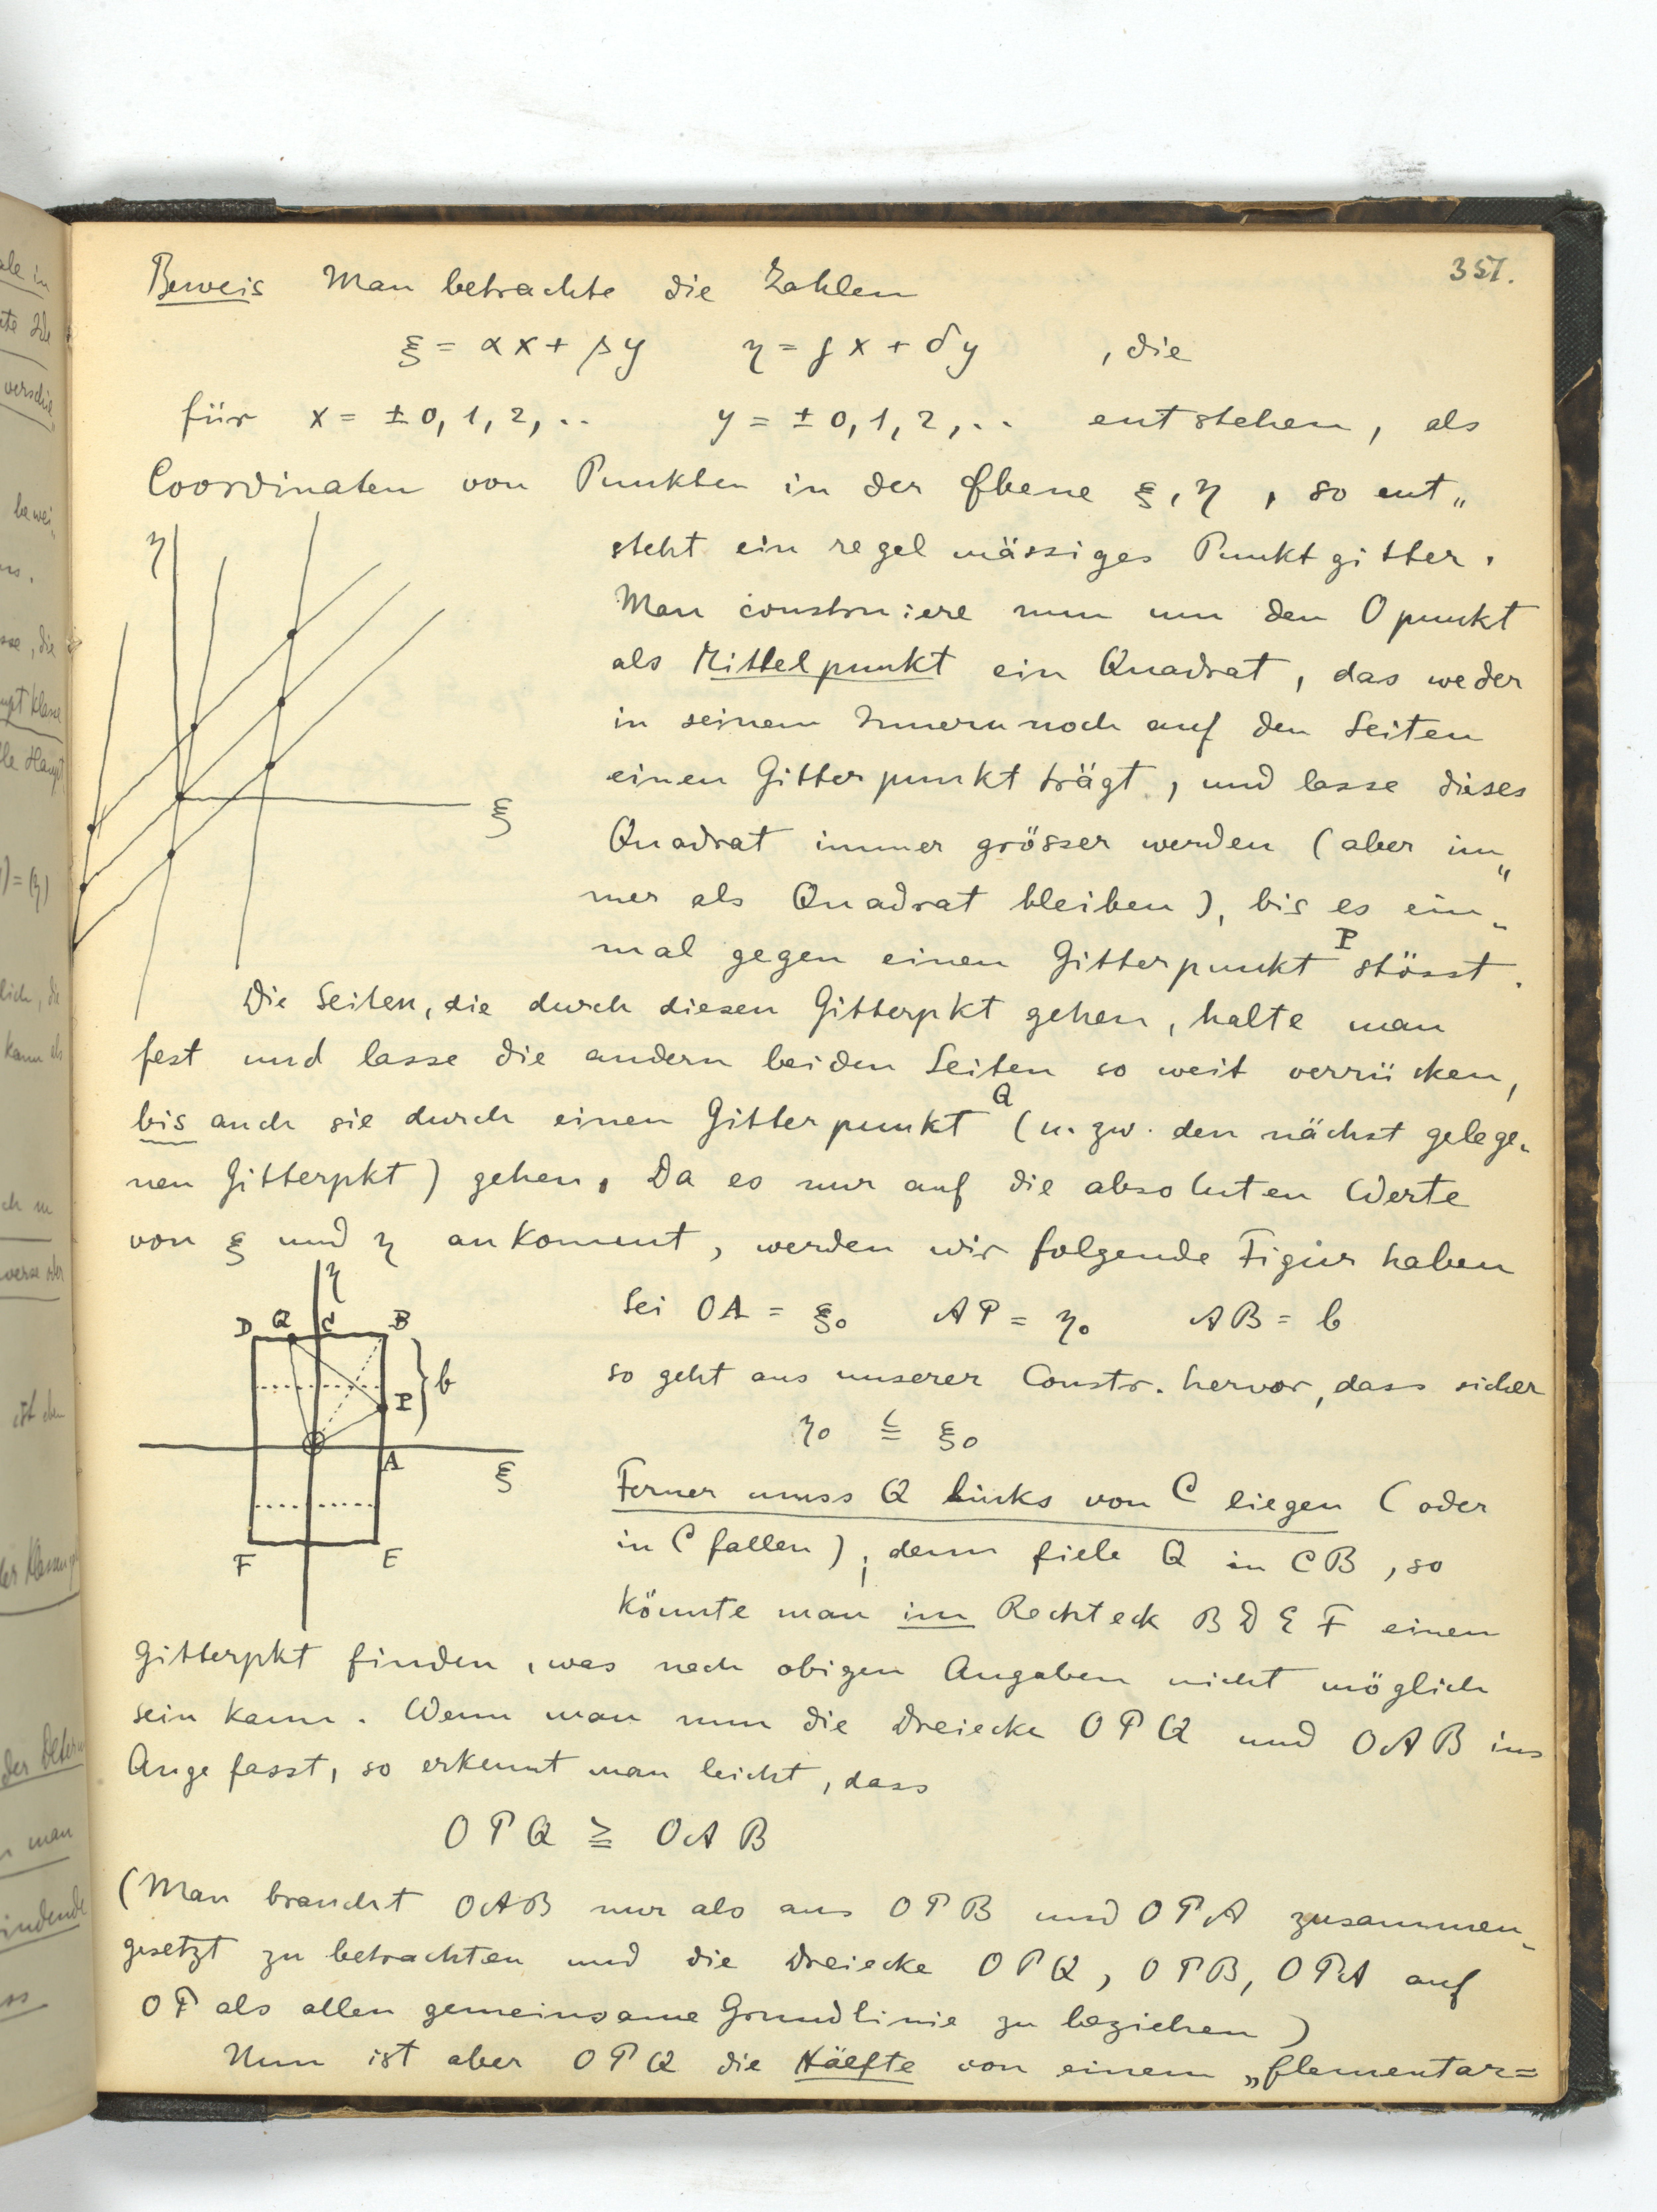 351.
Beweis Man betrachte die Zahlen
ξ = αx + βy η = γx + δy , die
für x = ±0, 1, 2, .. y = ±0, 1, 2, .. entstehen, als
Coordinaten von Punkten in der Ebene ξ, η , so ent„
steht ein regelmässiges Punktgitter.
Man construiere nun um den Opunkt
als Mittelpunkt ein Quadrat, das weder
in seinem Innern noch auf den Seiten
einen Gitterpunkt trägt, und lasse dieses
Quadrat immer grösser werden (aber im„
mer als Quadrat bleiben), bis es ein„
mal gegen einen Gitterpunkt P stösst.
η
ξ
Die Seiten, die durch diesen Gitterpkt gehen, halte man
fest und lasse die andern beiden Seiten so weit verrücken,
bis auch sie durch einen Gitterpunkt Q (u. zw. den nächst gelege„
nen Gitterpkt) gehen. Da es nur auf die absoluten Werte
von ξ und η ankommt, werden wir folgende Figur haben
η
D Q C B
b
P
O
A
ξ
F E
Sei OA = ξ₀ AP = η₀ AB = b
so geht aus unserer Constr. hervor, dass sicher
η₀ ≦ ξ₀
Ferner muss Q links von C liegen (oder
in C fallen), denn fiele Q in CB, so
könnte man im Rechteck BDEF einen
Gitterpkt finden, was nach obigen Angaben nicht möglich
sein kann. Wenn man nun die Dreiecke OPQ und OAB ins
Auge fasst, so erkennt man leicht, dass
OPQ ≧ OAB
(Man braucht OAB nur als aus OPB und OPA zusammen„
gesetzt zu betrachten und die Dreiecke OPQ, OPB, OPA auf
OP als allen gemeinsame Grundlinie zu beziehen)
Nun ist aber OPQ die Hälfte von einem „Elementar=